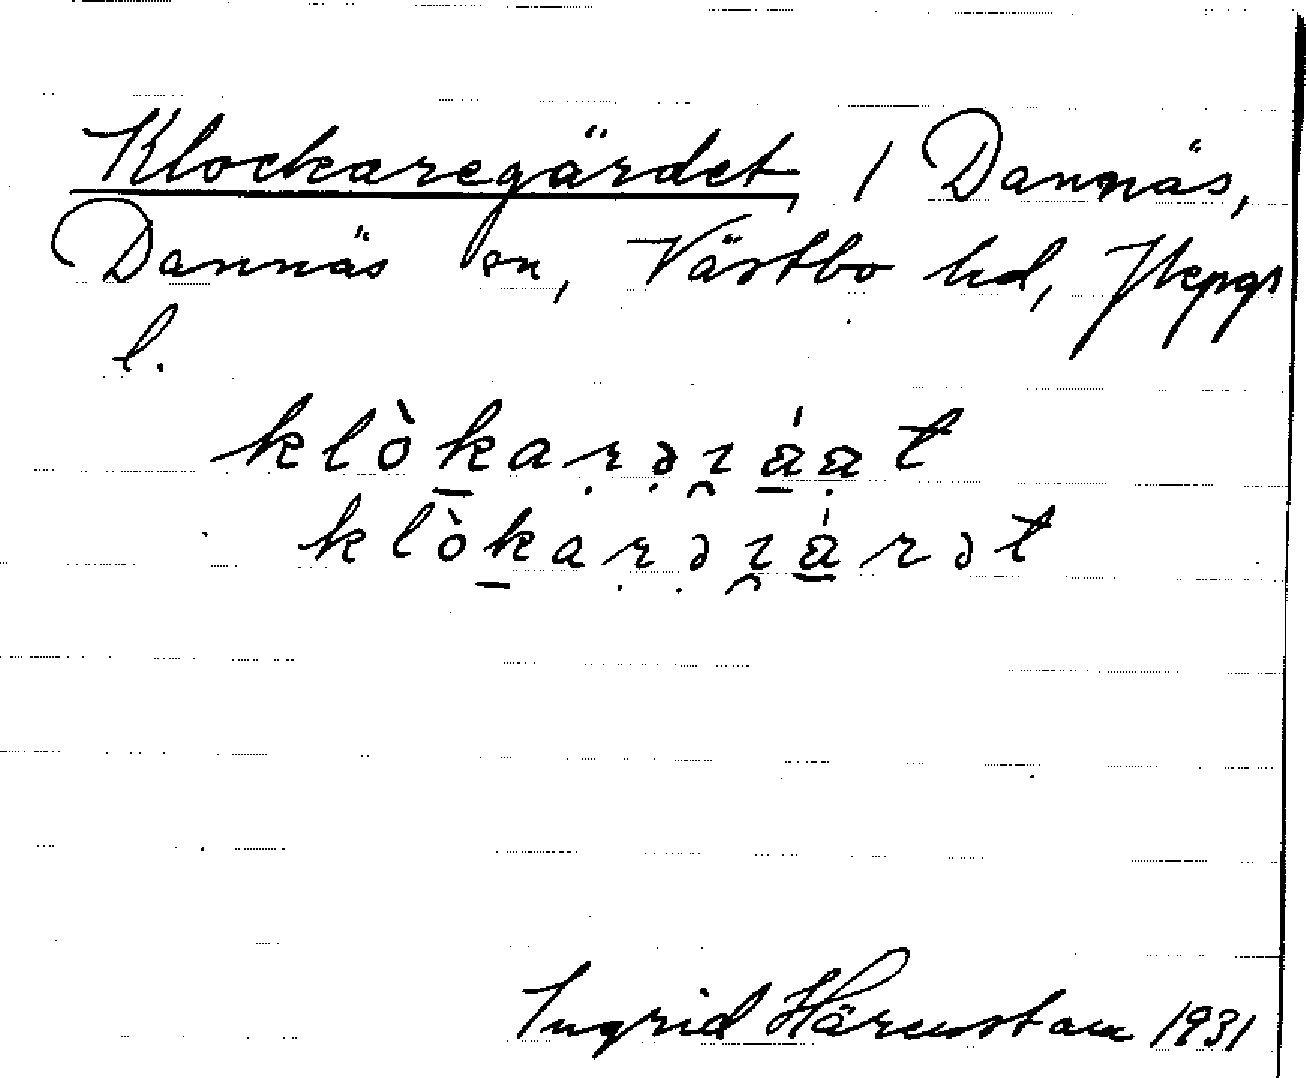 Klockaregärdet / Dannäs,
Dannäs sn, Västbo hd, Jkpgs
l.
klòkarəɪáat
klòkarəɪárət
Ingrid Härenstam 1931